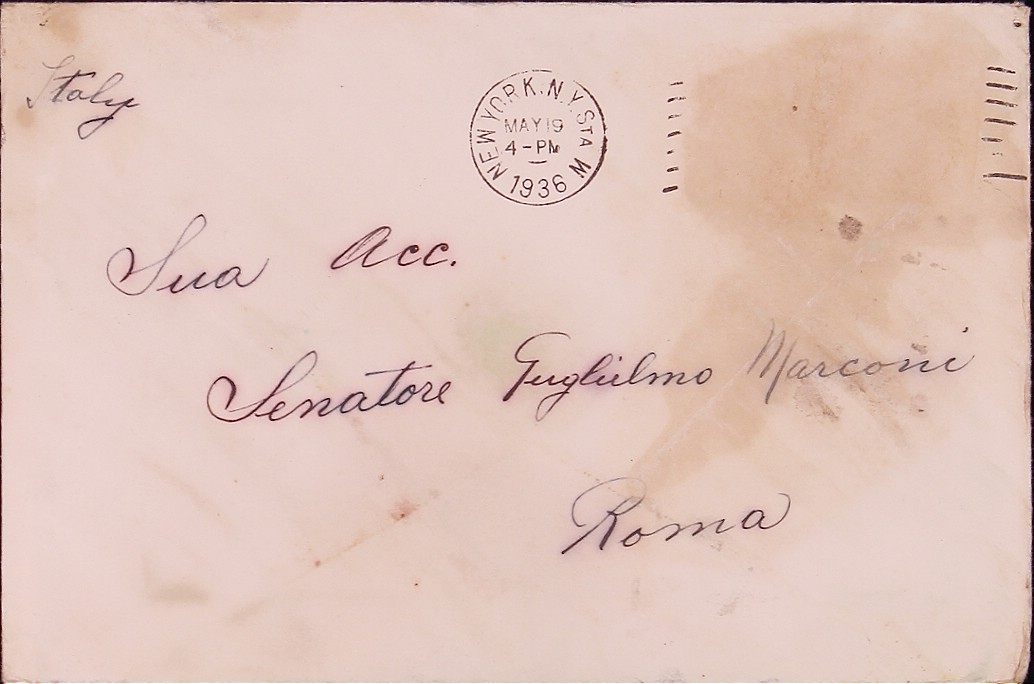 Italy
NEW YORK, N.Y. STA W
MAY 19
4-PM
1936
Sua Acc.
Senatore Guglielmo Marconi
Roma